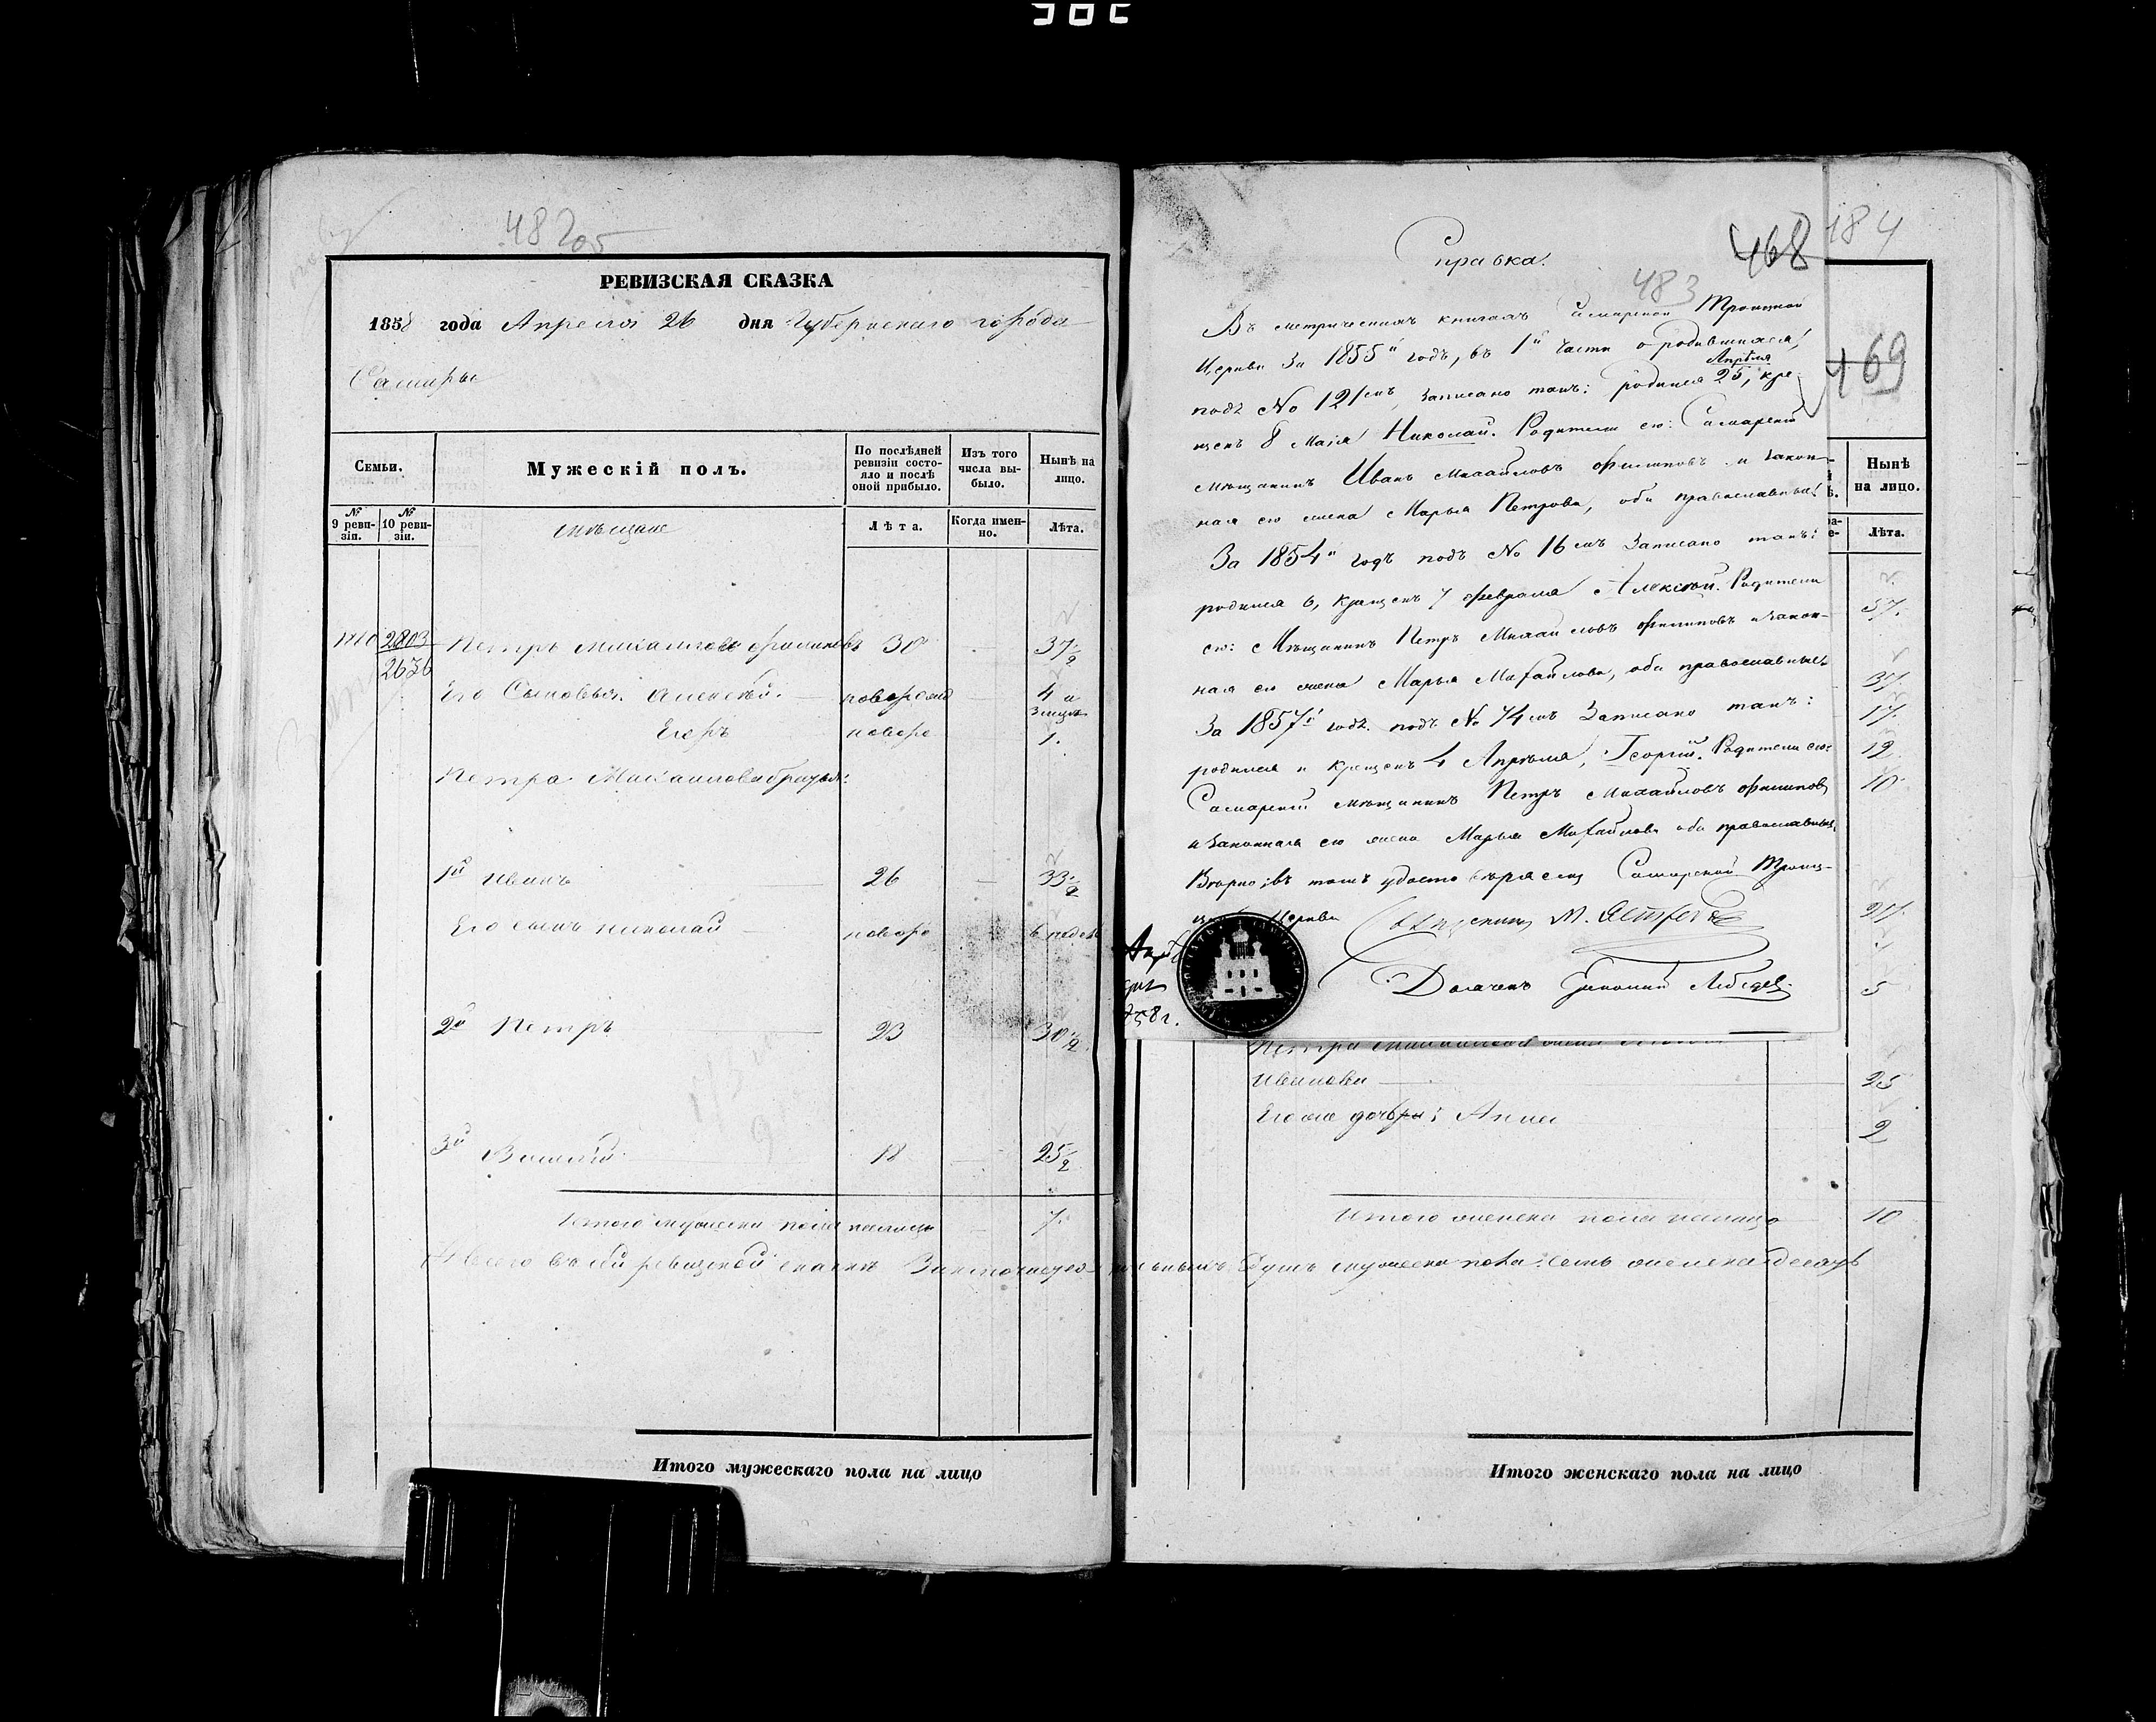 482 об
РЕВИЗСКАЯ СКАЗКА
1858 года Апреля 26 дня Губернскаго города
Самары
Семьи.
Мужескій полъ.
По послѣдней ревизіи состояло и послѣ оной прибыло.
Изъ того числа выбыло.
Нынѣ на лицо.
№ 9 ревизіи.
№ 10 ревизіи.
мѣщане
Лѣта.
Когда именно.
Лѣта.
2803
2636
Петръ Михаиловъ Филиповъ 30 37 1/2
Его Сыновья: Алексѣй новорожд 4 и 3 мцъ
Егоръ новоро 1.
Петра Михаилова братья:
1й Иванъ 26 33 1/2
Его сынъ Николай новоро
2й Петръ 23 30 1/2
3й Василій 18 25 1/2
Итого мужска пола налицо 7.
А всего въ сей ревизской сказкѣ душъ мужеска пола семь женска десять
Итого мужескаго пола на лицо
Справка.
468
483
Въ метрическихъ книгахъ Самарской Троицкой
Церкви За 1855й годъ, въ 1й части о родившихся,
подъ № 121мъ, записано такъ: родился 25, Апрѣля кре-
щенъ 8 Маія Николай. Родители его: Самарскій
мѣщанинъ Иванъ Михайловъ Филиповъ и закон-
ная его жена Марья Петрова, оба православные.
За 1854й годъ подъ № 16мъ Записано такъ:
родился 6, крещенъ 7 февраля Алексѣй. Родители
его: Мѣщанинъ Петръ Михайловъ Филиповъ и закон-
ная его жена Марья Михайлова, оба православные.
За 1857й годъ подъ № 74мъ Записано такъ:
родился и крещенъ 4 Апрѣля, Георгій. Родители его:
Самарскій мѣщанинъ Петръ Михайловъ Филиповъ
и законная его жена Марья Михайлова оба православные.
Вѣрно; въ томъ удостовѣряемъ Самарской Троиц-
Церкви Священникъ М.
Лебедев
58 г.
184
469
Нынѣ на лицо.
Лѣта.
37.
37.
17.
12
10
27
5
Иванова 25
Его же дочь: Анна 2
Итого женска пола налицо 10
Итого женскаго пола на лицо